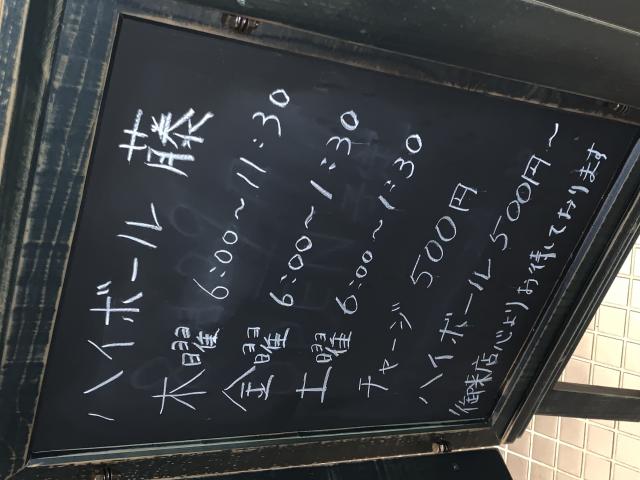 ハイボール 藤
木曜 6:00〜11:30
金曜 6:00〜1:30
土曜 6:00〜1:30
チャージ 500円
ハイボール 500円〜
御来店心よりお待しております